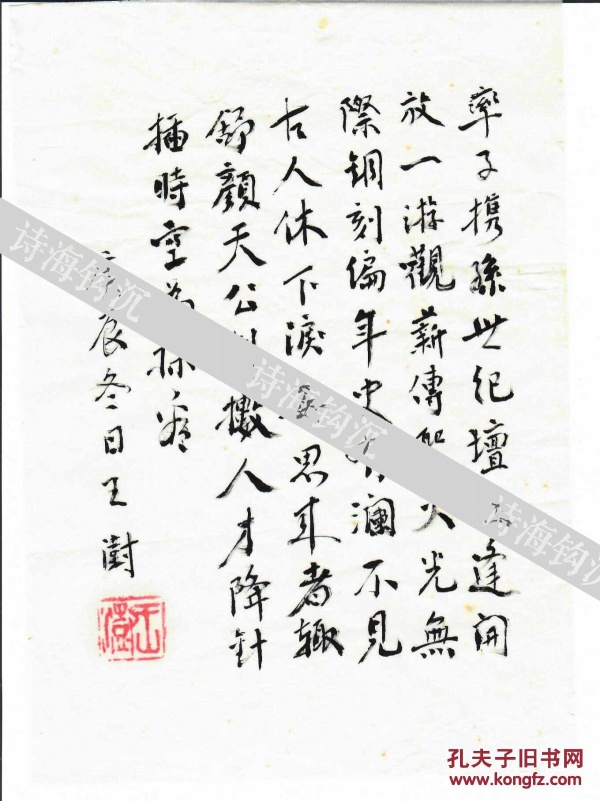 率子携孫世紀壇逢開
放一游觀薪傳聖火光無
際銅刻編年史瀾不見
古人休下淚思來者輙
舒顏天公擻人才降針
插時空為
辰冬日王澍
诗海钩沉
诗海钩沉
诗海钩沉
孔夫子旧书网
www.kongfz.com